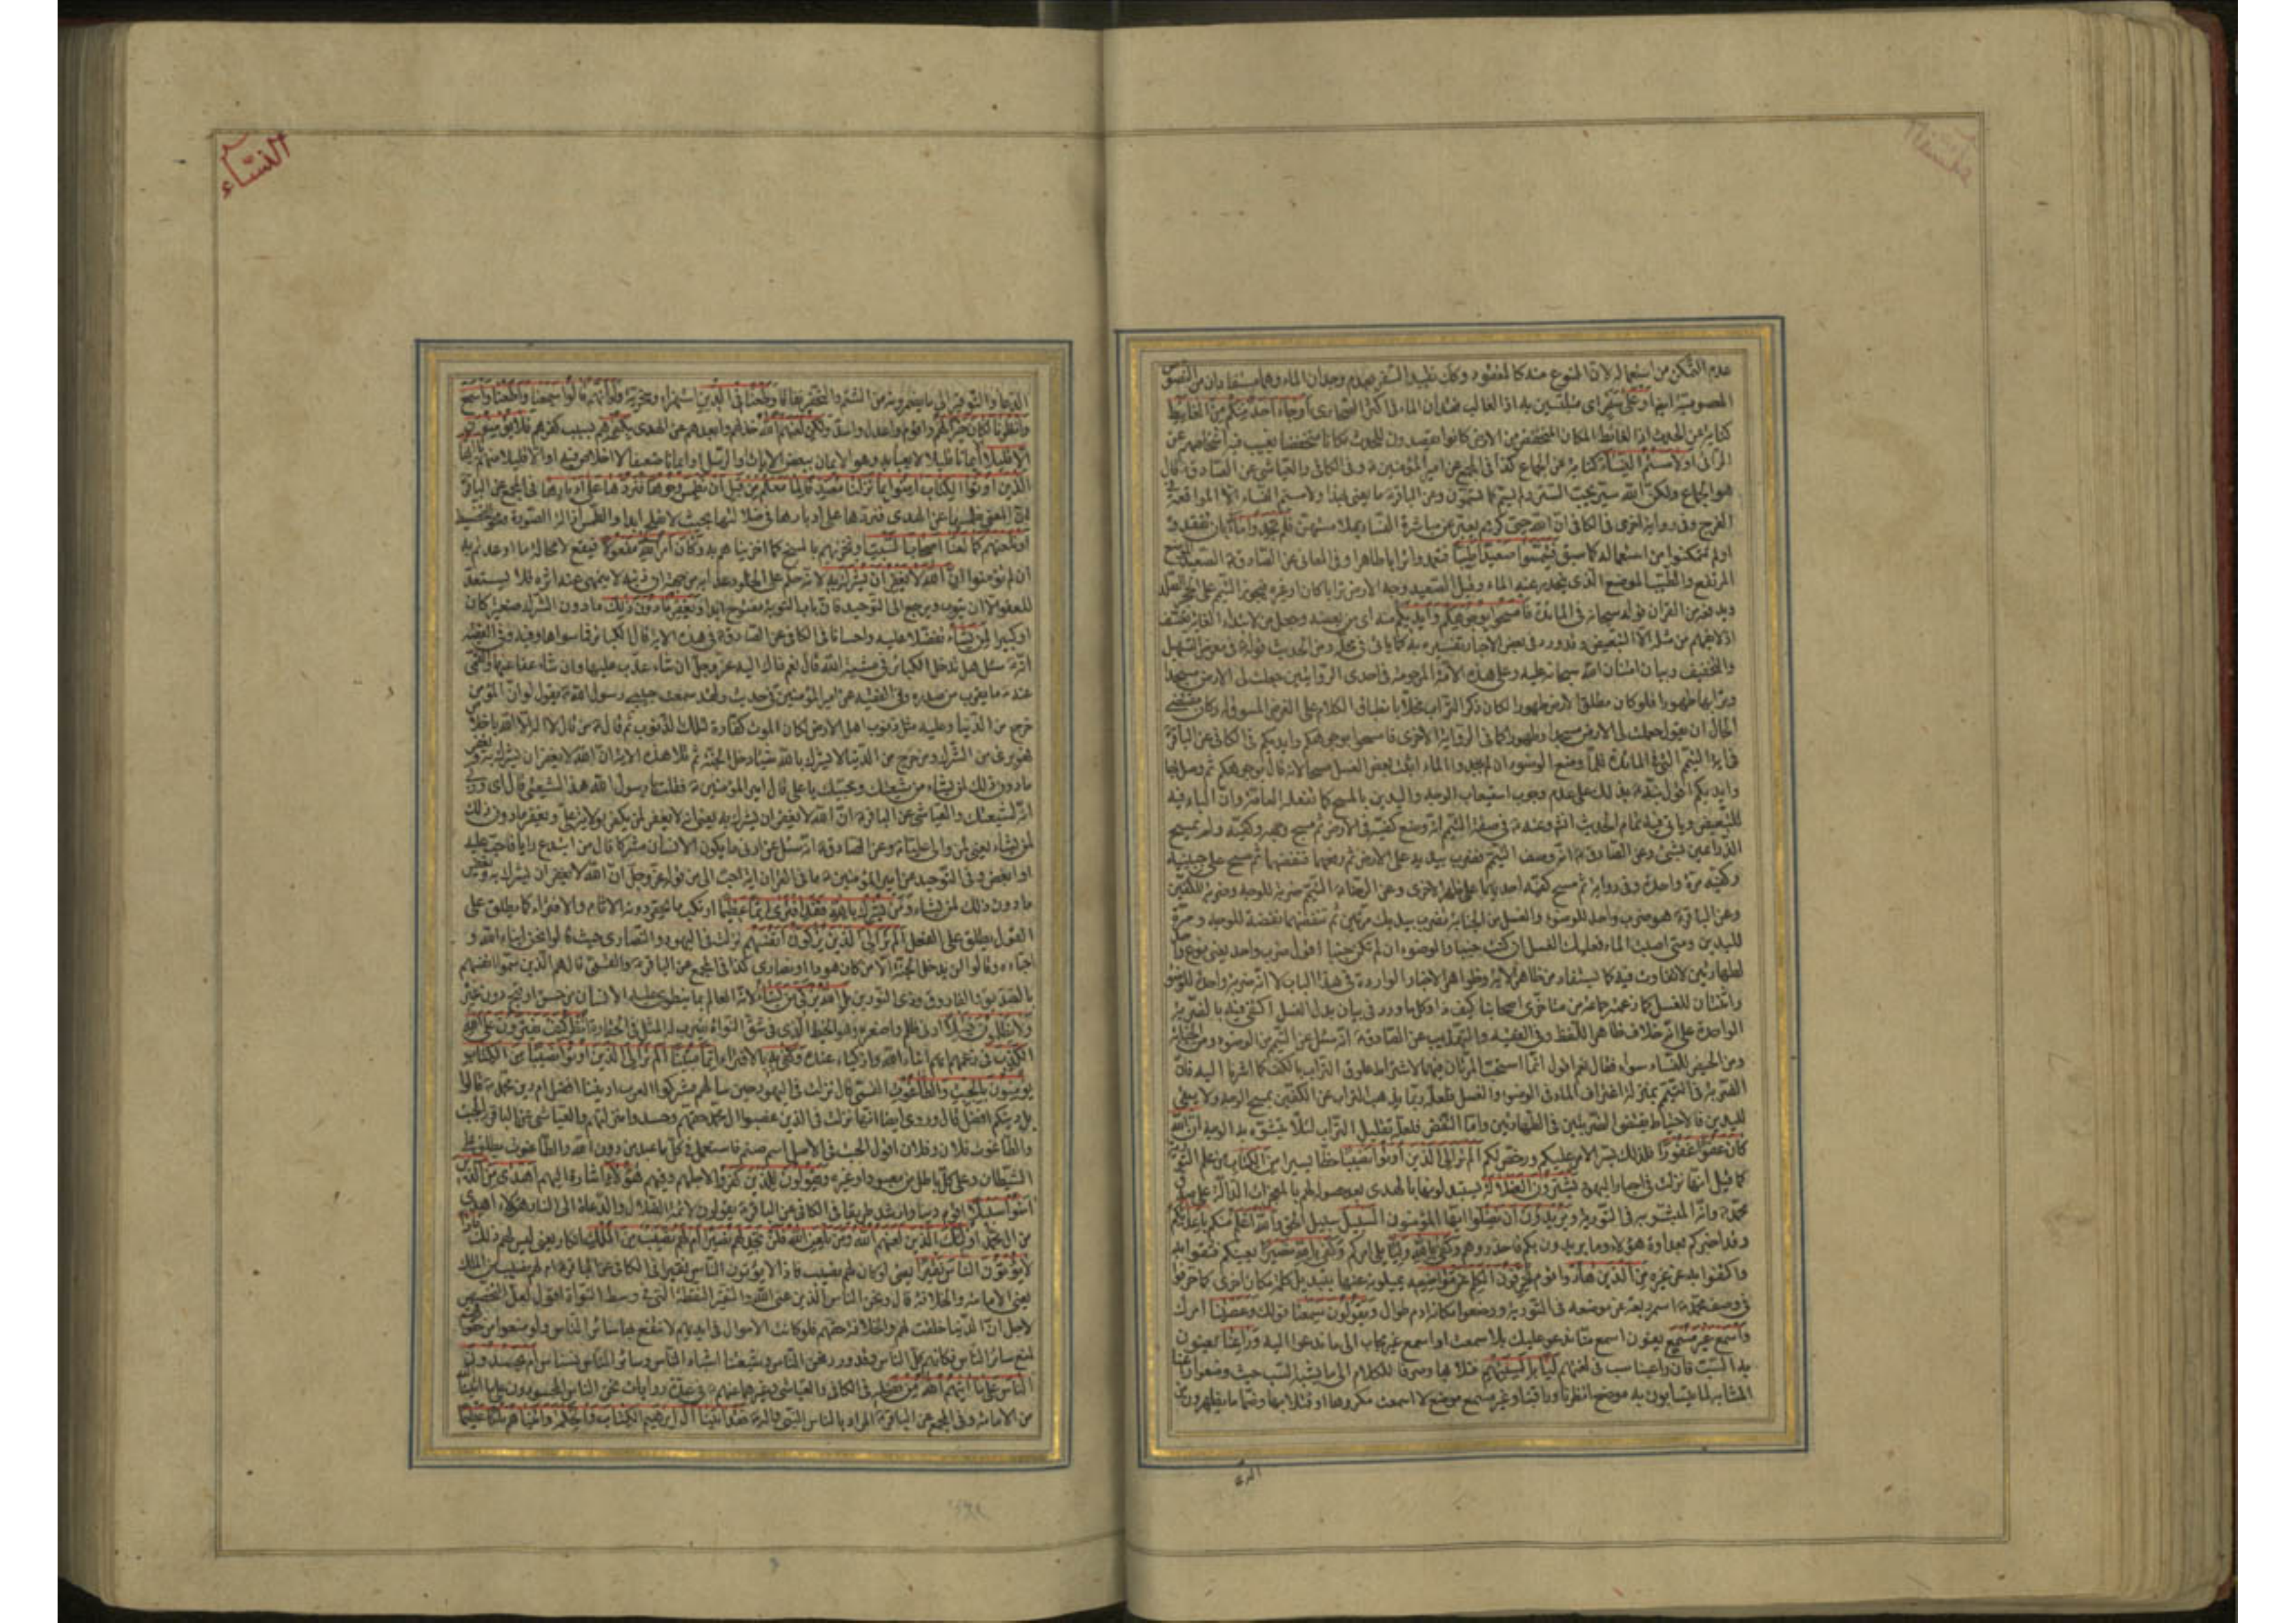 عدم التمكن من استعماله لان الممنوع منه كالمفقود وكان تقييد السفر بعدم وجدان الماء وهما مستفادان من النصوص
المعصومية ايضا او على سفر اى متلبسين به اذا الغالب فقدان الماء فى اكثر الصحارى او جاء احد منكم من الغايط
كناية عن الحدث اذ الغائط المكان المنخفض من الارض كانوا يقصدون للحدث مكانا منخفضا يغيب فيه اشخاصهم عن
الرائى او لامستم النساء كناية عن الجماع كذا فى المجمع عن امير المؤمنين وفى الكافى والعياشى عن الصادق قال
هو الجماع ولكن الله ستير يحب الستر ولم يسم كما تسمون وعن الباقر ما يعنى بهذا او لامستم النساء الا المواقعة فى
الفرج وفى رواية اخرى فى الكافى ان الله حيى كريم يعبر عن مباشرة النساء بملامستهن فلم تجدوا ماء بان تفقدوه
او لم تتمكنوا من استعماله كما سبق فتيمموا صعيدا طيبا فتعمدوا ترابا طاهرا وفى المعانى عن الصادق الصعيد الموضع
المرتفع والطيب الموضع الذى ينحدر عنه الماء وقيل الصعيد وجه الارض ترابا كان او غيره فيجوز التيمم على الحجر الصلد
ويدفعه من القران قوله سبحانه فى المائدة فامسحوا بوجوهكم وايديكم منه اى من بعضه وجعل من لابتداء الغاية تعسف
اذ لا يفهم من مثله الا التبعيض وقد ورد فى بعض الاخبار تفسيره به كما ياتى فى محله ومن الحديث قوله فى معرض التسهيل
والتخفيف وبيان امتنان الله سبحانه عليه وعلى هذه الامة المرحومة فى احدى الروايتين جعلت لى الارض مسجدا
وترابها طهورا فلو كان مطلق الارض طهورا لكان ذكر التراب مخلا بانطباق الكلام على الغرض المسوق له وكان مقتضى
الحال ان يقول جعلت لى الارض مسجدا وطهورا كما فى الرواية الاخرى فامسحوا بوجوهكم وايديكم فى الكافى عن الباقر
فى اية التيمم التى فى المائدة فلما وضع الوضوء ان لم يجدوا الماء اثبت بعض الغسل مسحا لانه قال بوجوهكم ثم وصل بها
وايديكم اقول نبه بذلك على عدم وجوب استيعاب الوجه واليدين بالمسح كما تفعله العامة وان الباء فيه
للتبعيض وياتى فيه تمام الحديث انش وعنه فى صفة التيمم انه وضع كفيه فى الارض ثم مسح وجهه وكفيه ولم يمسح
الذراعين بشئ وعن الصادق انه وصف التيمم فضرب بيديه على الارض ثم رفعهما فنفضهما ثم مسح على جبينيه
وكفيه مرة واحدة وفى رواية ثم مسح كفيه احديهما على ظهر الاخرى وعن الرضا التيمم ضربة للوجه وضربة للكفين
وعن الباقر هو ضرب واحد للوضوء والغسل من الجنابة تضرب بيديك مرتين ثم تنفضهما نفضة للوجه ومرة
لليدين ومتى اصبت الماء فعليك الغسل ان كنت جنبا والوضوء ان لم تكن جنبا اقول ضرب واحد يعنى نوع واحد
لطهارتين لا تفاوت فيه كما يستفاد من ظاهر الاية وظواهر الاخبار الواردة فى هذا الباب لا انه ضربة واحدة للوضوء
واثنتان للغسل كما زعمه جماعة من متاخرى اصحابنا كيف ذا وكل ما ورد فى بيان بدل الغسل اكتفى فيه بالضربة
الواحدة على انه خلاف ظاهر اللفظ وفى الفقيه والتهذيب عن الصادق انه سئل عن التيمم من الوضوء ومن الجنابة
ومن الحيض للنساء سواء فقال نعم اقول انما استحب المرتان فيهما لاشتراط علوق التراب بالكف كما اشرنا اليه فان
الضربة فى التيمم بمنزلة اغتراف الماء فى الوضوء والغسل فلعله ربما يذهب التراب عن الكفين بمسح الوجه ولا يبقى
لليدين فالاحتياط يقتضى الضربتين فى الطهارتين واما النفض فلعله تقليل التراب لئلا يتشوه به الوجه ان الله
كان عفوا غفورا فلذلك يسر الامر عليكم ورخص لكم الم تر الى الذين اوتوا نصيبا حظا يسيرا من الكتاب من علم التورية
كما قيل انها نزلت فى احبار اليهود يشترون الضلالة يستبدلونها بالهدى بعد حصوله لهم بالمعجزات الدالة على صدق
محمد وانه المبشر به فى التورية ويريدون ان تضلوا ايها المؤمنون السبيل سبيل الحق والله اعلم منكم باعدائكم
وقد اخبركم بعداوة هؤلاء وما يريدون بكم فاحذروهم وكفى بالله وليا يلى امركم وكفى بالله نصيرا يعينكم فثقوا به
واكتفوا به عن غيره من الذين هادوا قوم يحرفون الكلم عن مواضعه يميلونه عنها بتبديل كلمة مكان اخرى كما حرفوا
فى وصف محمد اسمر ربعة عن موضعه فى التورية ووضعوا مكانه ادم طوال ويقولون سمعنا قولك وعصينا امرك
واسمع غير مسمع يعنون اسمع منا ندعو عليك بلا سمعت او اسمع غير مجاب الى ما تدعو اليه وراعنا يعنون
به السب فان راعنا سب فى لغتهم ليا بالسنتهم فتلا بها وصرفا للكلام الى ما يشبه السب حيث وضعوا راعنا
المشابه لما يتسابون به موضع انظرنا وراقبنا وغير مسمع موضع لا اسمعت مكروها او فتلا بها وضما ما يظهرون
النساء
الدعاء والتوقير الى ما يضمرونه من الشتم والتحقير نفاقا وطعنا فى الدين استهزاء وسخرية ولو انهم قالوا سمعنا واطعنا واسمع
وانظرنا لكان خيرا لهم واقوم واعدل واسد ولكن لعنهم الله خذلهم وابعدهم عن الهدى بكفرهم بسبب كفرهم فلا يؤمنون
الا قليلا ايمانا قليلا لا يعبا به وهو الايمان ببعض الايات والرسل او ايمانا ضعيفا لا اخلاص فيه او الا قليلا منهم يا ايها
الذين اوتوا الكتاب امنوا بما نزلنا مصدقا لما معكم من قبل ان نطمس وجوها فنردها على ادبارها فى المجمع عن الباقر
ان المعنى نطمسها عن الهدى فنردها على ادبارها فى ضلالتها بحيث لا تفلح ابدا والطمس ازالة الصورة ومحو التخطيط
او نلعنهم كما لعنا اصحاب السبت او نخزيهم بالمسخ كما اخزينا هم به وكان امر الله مفعولا فيقع لا محالة ما اوعدتم به
ان لم تؤمنوا ان الله لا يغفر ان يشرك به لانه حكم على
للعفو الا ان يتوب ويرجع الى التوحيد فان باب التوبة مفتوح ابدا ويغفر ما دون ذلك ما دون الشرك صغيرا كان
او كبيرا لمن يشاء تفضلا عليه واحسانا فى الكافى عن الصادق فى هذه الاية قال الكبائر فما سواها وفيه وفى الفقيه
انه سئل هل تدخل الكبائر فى مشية الله قال نعم ذاك اليه عز وجل ان شاء عذب عليها وان شاء عفا عنها والقمى
عنه ما يقرب من صدره وفى الفقيه عن امير المؤمنين فى حديث ولقد سمعت حبيبى رسول الله يقول لو ان المؤمن
خرج من الدنيا وعليه مثل ذنوب اهل الارض لكان الموت كفارة لتلك الذنوب ثم قال من قال لا اله الا الله باخلاص
فهو برىء من الشرك ومن خرج من الدنيا لا يشرك بالله شيئا دخل الجنة ثم تلا هذه الاية ان الله لا يغفر ان يشرك به ويغفر
ما دون ذلك لمن يشاء من شيعتك ومحبيك يا على قال امير المؤمنين فقلت يا رسول الله هذا لشيعتى قال اى وربى
انه لشيعتك والعياشى عن الباقر ان الله لا يغفر ان يشرك به يعنى انه لا يغفر لمن يكفر بولاية على ويغفر ما دون ذلك
لمن يشاء يعنى لمن والى عليا وعن الصادق انه سئل عن ادنى ما يكون الانسان مشركا قال من ابتدع رايا فاحب عليه
او ابغض وفى التوحيد عن امير المؤمنين ما فى القران اية احب الى من قوله عز وجل ان الله لا يغفر ان يشرك به ويغفر
ما دون ذلك لمن يشاء ومن يشرك بالله فقد افترى اثما عظيما ارتكب ما يستحقر دونه الاثام والافتراء كما يطلق على
القول يطلق على الفعل الم تر الى الذين يزكون انفسهم نزلت فى اليهود والنصارى حيث قالوا نحن ابناء الله و
احباءه وقالوا لن يدخل الجنة الا من كان هودا او نصارى كذا فى المجمع عن الباقر والقمى قال هم الذين سموا انفسهم
بالصديق والفاروق وذى النورين بل الله يزكى من يشاء لانه العالم بما ينطوى عليه الانسان من حسن او قبح دون غيره
ولا يظلمون فتيلا ادنى ظلم واصغره وهو الخيط الذى فى شق النواة يضرب به المثل فى الحقارة انظر كيف يفترون على الله
الكذب فى زعمهم انهم ابناء الله وازكياء عنده وكفى به بالافتراء اثما مبينا الم تر الى الذين اوتوا نصيبا من الكتاب
يؤمنون بالجبت والطاغوت القمى قال نزلت فى اليهود حين سالهم مشركوا العرب اديننا افضل ام دين محمد قالوا
بل دينكم افضل قال وروى ايضا انها نزلت فى الذين غصبوا ال محمد حقهم وحسدوا منزلتهم والعياشى عن الباقر الجبت
والطاغوت فلان وفلان اقول الجبت فى الاصل اسم صنم فاستعمل فى كل ما عبد من دون الله والطاغوت يطلق على
الشيطان وعلى كل باطل من معبود او غيره ويقولون للذين كفروا لاجلهم وفيهم هؤلاء اشارة اليهم اهدى من الذين
امنوا سبيلا اقوم دينا وارشد طريقا فى الكافى عن الباقر يقولون لائمة الضلال والدعاة الى النار هؤلاء اهدى
من ال محمد اولئك الذين لعنهم الله ومن يلعن الله فلن تجد له نصيرا ام لهم نصيب من الملك انكار يعنى ليس لهم ذلك
لا يؤتون الناس نقيرا يعنى لو كان لهم نصيب فاذا لا يؤتون الناس نقيرا فى الكافى عن الباقر ام لهم نصيب من الملك
يعنى الامامة والخلافة قال ونحن الناس الذين عنى الله والنقير النقطة التى فى وسط النواة اقول لعل التخصيص
لاجل ان الدنيا خلقت لهم والخلافة حقهم فلو كانت الاموال فى ايديهم لانتفع بها سائر الناس ولو منعوا من حقوقهم
لمنع سائر الناس فكانهم كل الناس وقد ورد نحن الناس وشيعتنا اشباه الناس وسائر الناس نسناس ام يحسدون
الناس على ما اتيهم الله من فضله فى الكافى والعياشى وغيرهما عنهم فى عدة روايات نحن الناس المحسودون على ما اتينا
من الامامة وفى المجمع عن الباقر المراد بالناس النبى واله فقد اتينا ال ابرهيم الكتاب والحكمة واتيناهم ملكا عظيما